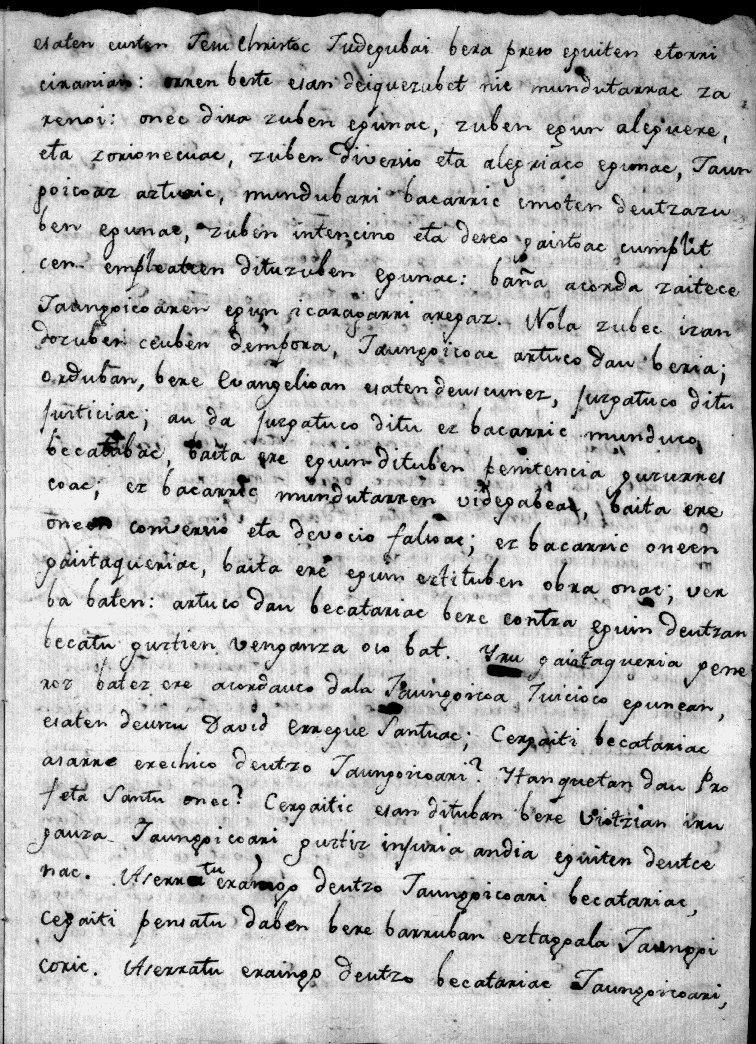 esaten eusten Jesu Christoc Judegubai bera preso eguiten etorri
ciranian: orren beste esan deiquezubet nic mundutarrac za
renoi: onec dira zuben egunac, zuben egun aleguere,
eta zorionecuac, zuben diversio eta alegriaco egunac, Jaun
goicoac azturic, mundubari bacarric emoten deutzazu
ben egunac, zuben intencino eta deseo gaistoac cumplit
cen empleatcen dituzuben egunac: baña acorda zaitece
Jaungoicoaren egun icaragarri aregaz. Nola zubec izan
dozuben ceuben dempora, Jaungoicoac artuco dau beria;
orduban, bere Evangelioan esaten deuscunez, juzgatuco ditu
justiciac; au da juzgatuco ditu ez bacarric munduco
becatubac, baita ere eguin dituben penitencia guzurres
coac; ez bacarric mundutarren videgabeac, baita ere
oneen conversio eta devocio falsoac; ez bacarric oneen
gaistaqueriac, baita ere eguin eztituben obra onac; ver
ba baten: artuco dau becatariac bere contra eguin deutzan
becatu guztien venganza oso bat. Yru gaistaqueria gene
roz batez ere acordauco dala Jaungoicoa Juicioco egunean,
esaten deuscu David Erregue Santuac; Cergaiti becatariac
asarre erechico deutzo Jaungoicoari? Itanquetan dau Pro
feta Santu onec? Cergaitic esan dituban bere viotzian iru
gauza Jaungoicoari guztiz injuria andia eguiten deutce
nac. Aserratu eraingo deutzo Jaungoicoari becatariac,
cegaiti pensatu daben bere barruban eztagoala Jaungoi
coric. Aserratu eraingo deutzo becatariac Jaungoicoari,